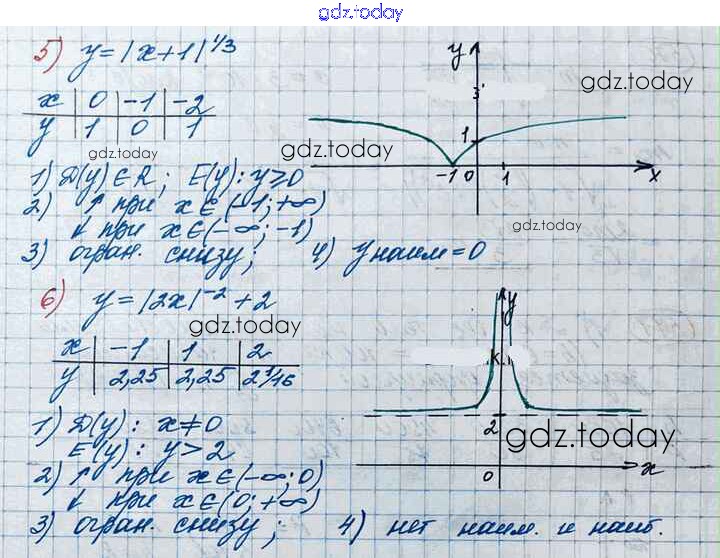 gdz.today
5) y = |x+1|^1/3
x | 0 | -1 | -2
y | 1 | 0 | 1
gdz.today
gdz.today
gdz.today
y
3
1
-1 0 1 x
1) D(y) ∈ R; E(y): y ≥ 0
2) ↑ при x ∈ (-1; +∞)
↓ при x ∈ (-∞; -1)
gdz.today
3) огран. снизу; 4) y наим = 0
6) y = |2x|^-2 + 2
gdz.today
x | -1 | 1 | 2
y | 2,25 | 2,25 | 2 1/16
y
2
0 x
gdz.today
1) D(y): x ≠ 0
E(y): y > 2
2) ↑ при x ∈ (-∞; 0)
↓ при x ∈ (0; +∞)
3) огран. снизу; 4) нет наим. и наиб.